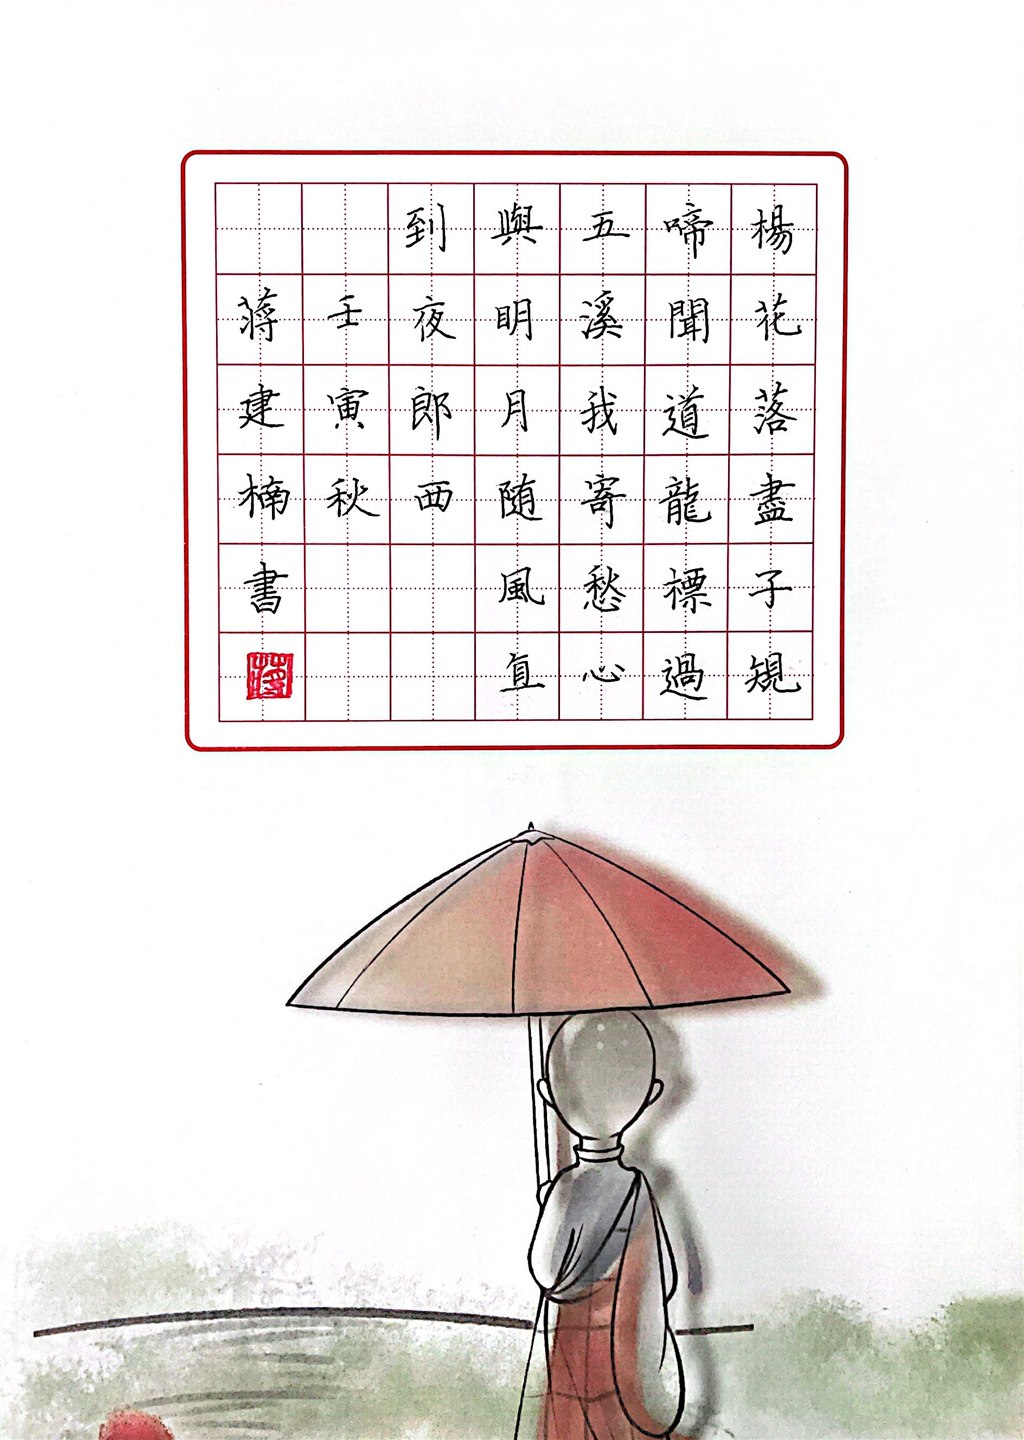 楊花落盡子規
啼聞道龍標過
五溪我寄愁心
與明月随風直
到夜郎西
壬寅秋
蔣建楠書
蔣